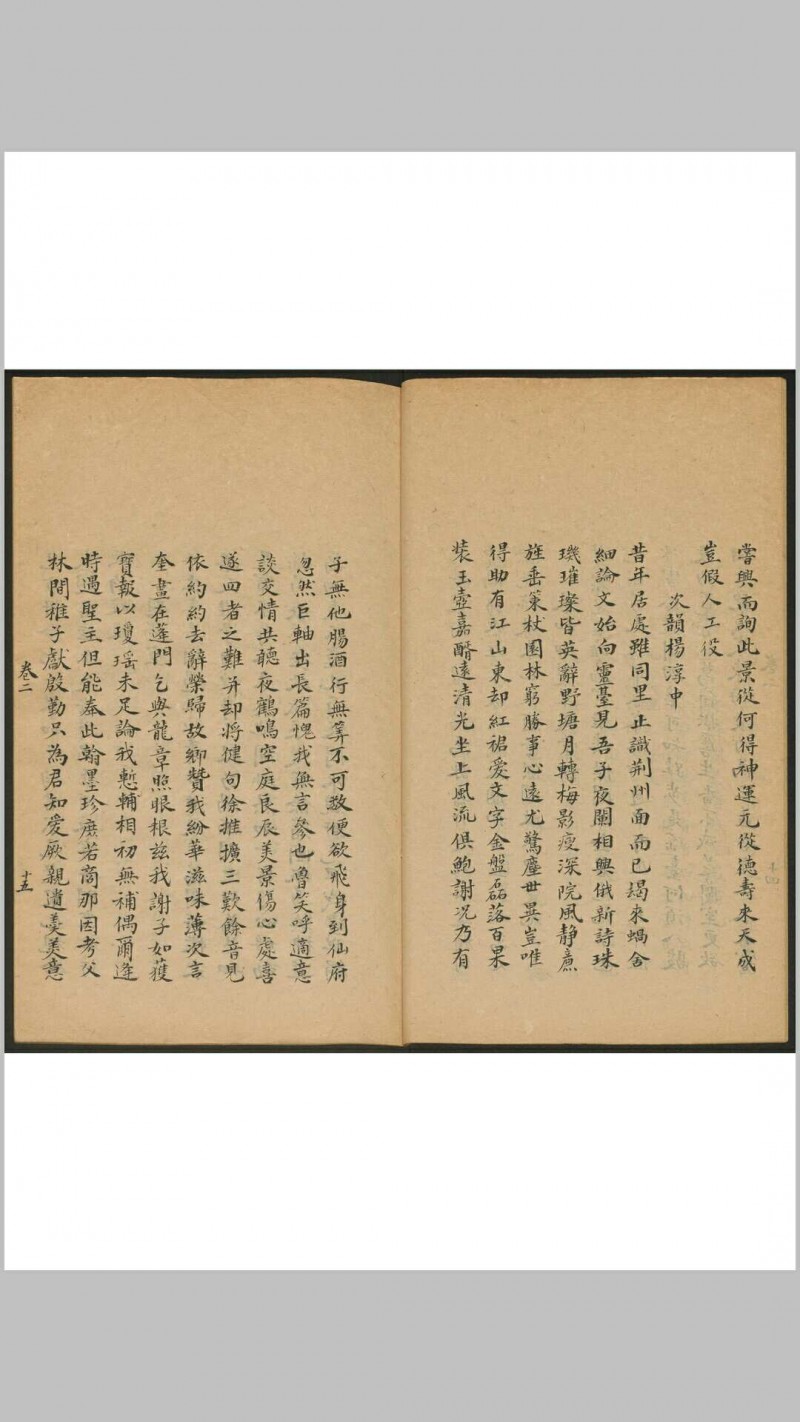 嘗興而詢此景從何得神運元從德壽來天成
豈假人工役
次韻楊淳中
昔年居處雖同里止識荆州面而已朅來蝸舍
細論文始向靈臺見吾子夜闌相與俄新詩珠
璣璀璨皆英辭野塘月轉梅影瘦深院風静簾
旌垂策杖園林窮勝事心遠尤驚塵世異豈唯
得助有江山東却紅裙愛文字金盤磊落百果
裝玉壺嘉醑遠清光坐上風流俱鮑謝况乃有
子無他腸酒行無筭不可數便欲飛身到仙府
忽然巨軸出長篇愧我無言參也魯笑呼適意
談交情共聽夜鶴鳴空庭良辰美景傷心處喜
遂四者之難并却將健句徐推擴三歎餘音見
依約約去辭榮歸故鄉贊我紛華滋味薄次言
奎畫在蓬門乞與龍章照眼根兹我謝子如獲
寶報以瓊瑶未足論我慙輔相初無補偶爾逢
時遇聖主但能奉此翰墨珍庶若商那因考父
林間稚子獻殷勤只為君知愛厥親遺羹美意
卷二
十五